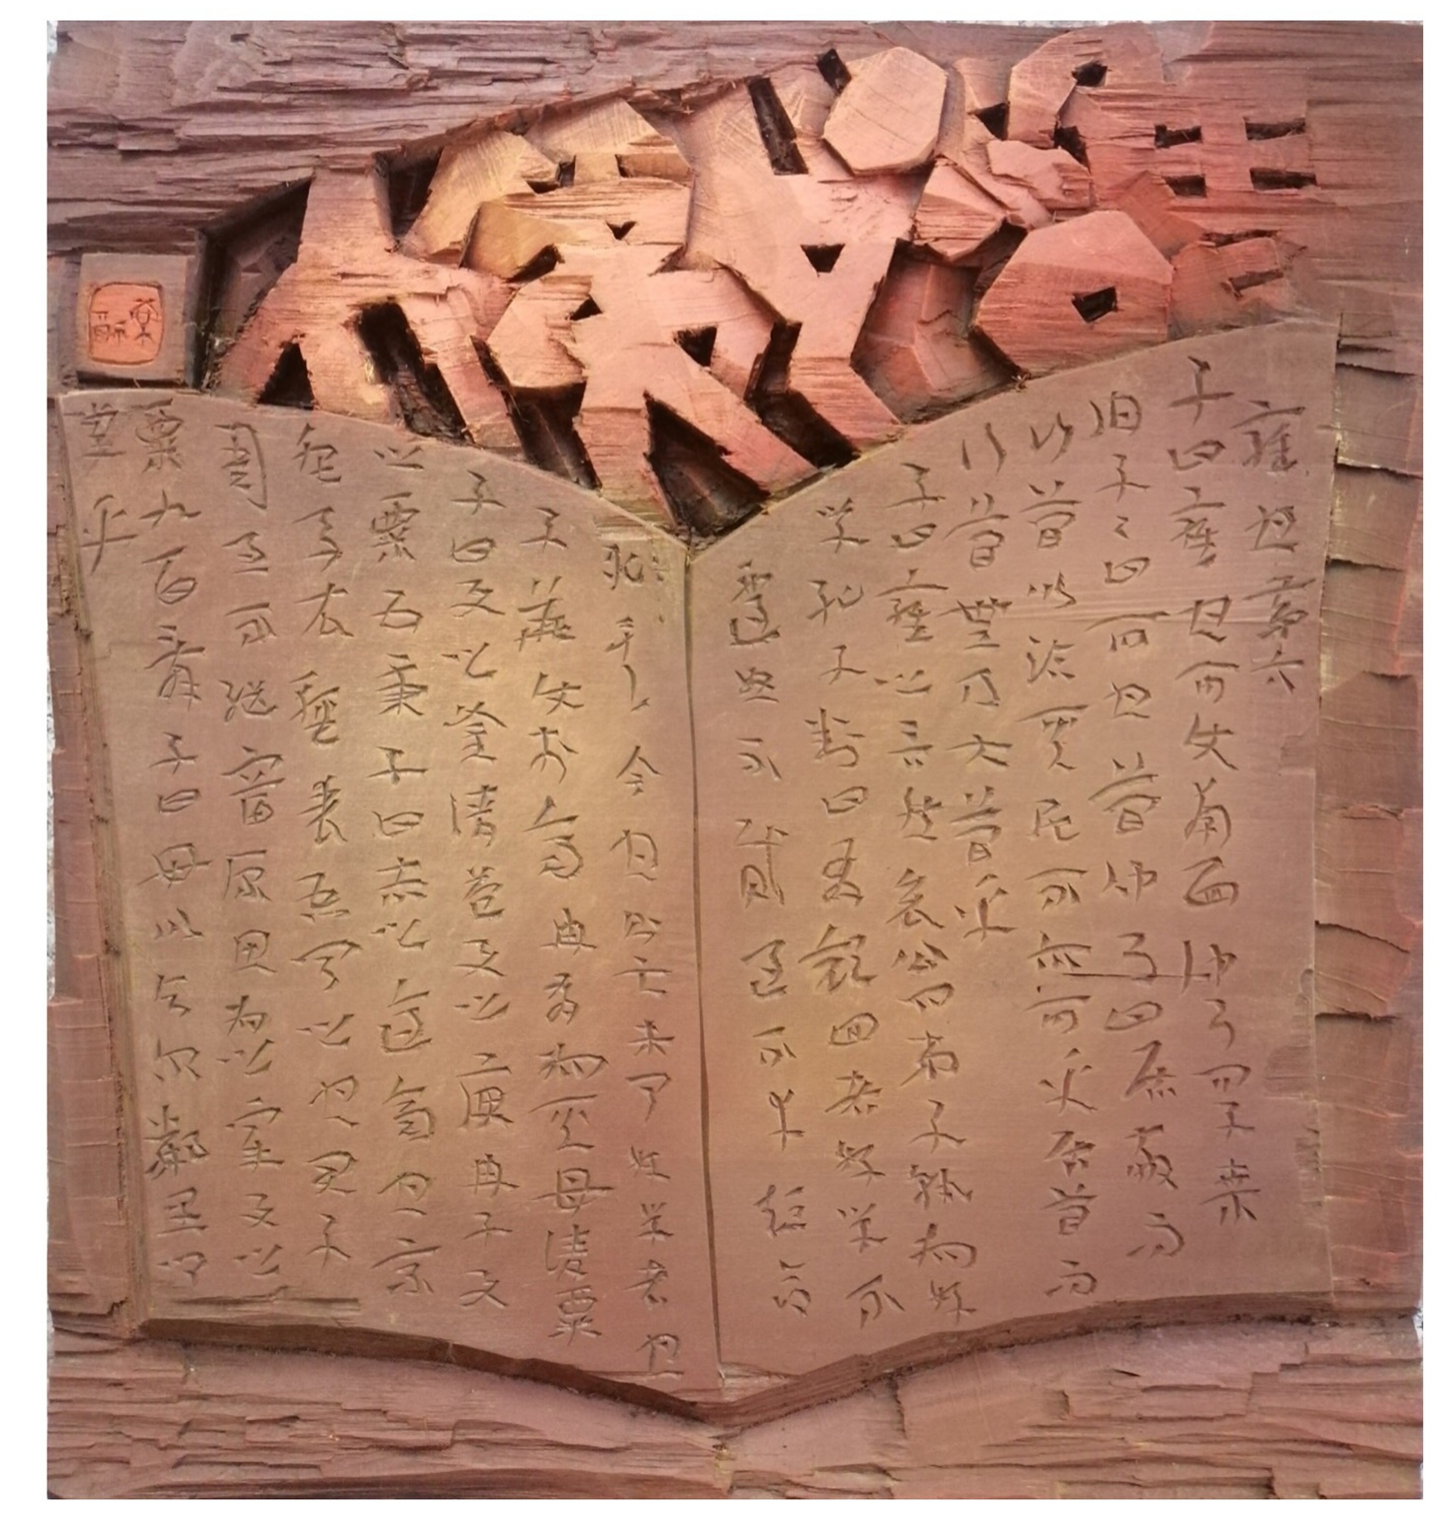 雍也第六
子曰雍也可使南面仲弓曰子桑
伯子〻曰可也簡仲弓曰居敬而
行簡以臨其民不亦可乎居簡而
行簡無乃大簡乎
子曰雍之言然哀公問弟子孰為好
學孔子對曰有顏回者好學不
遷怒不貳過不幸短命
死矣今也則亡未聞好學者也
子華使於齊冉子為其母請粟
子曰與之釜請益與之庾冉子與
之粟五秉子曰赤之適齊也乘
肥馬衣輕裘吾聞之也君子
周急不繼富原思為之宰與之
粟九百辭子曰毋以與爾鄰里鄉
黨乎